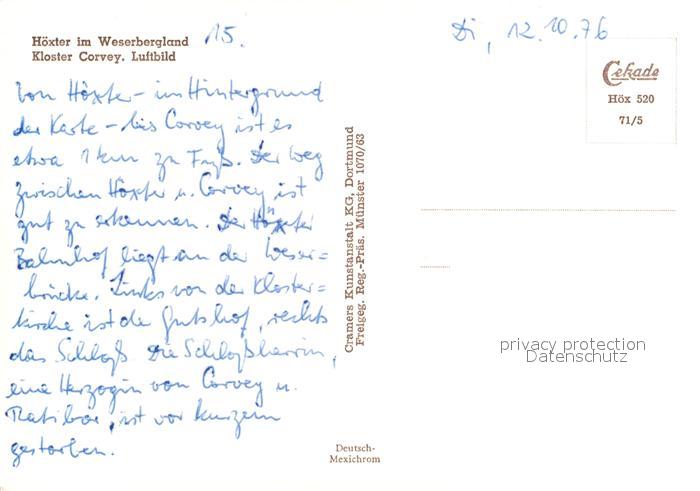 Höxter im Weserbergland
Kloster Corvey. Luftbild
15.
Di, 12.10.76
Von Höxter - im Hintergrund
der Karte - bis Corvey ist es
etwa 1 km zu Fuß. Der Weg
zwischen Höxter u. Corvey ist
gut zu erkennen. Der Höxter
Bahnhof liegt an der Weser=
brücke. Links von der Kloster=
kirche ist der Gutshof, rechts
das Schloß. Die Schloßherrin,
eine Herzogin von Corvey u.
Ratibor, ist vor kurzem
gestorben.
Cramers Kunstanstalt KG, Dortmund
Freigeg. Reg.-Präs. Münster 1070/63
Cekade
Höx 520
71/5
privacy protection
Datenschutz
Deutsch-
Mexichrom